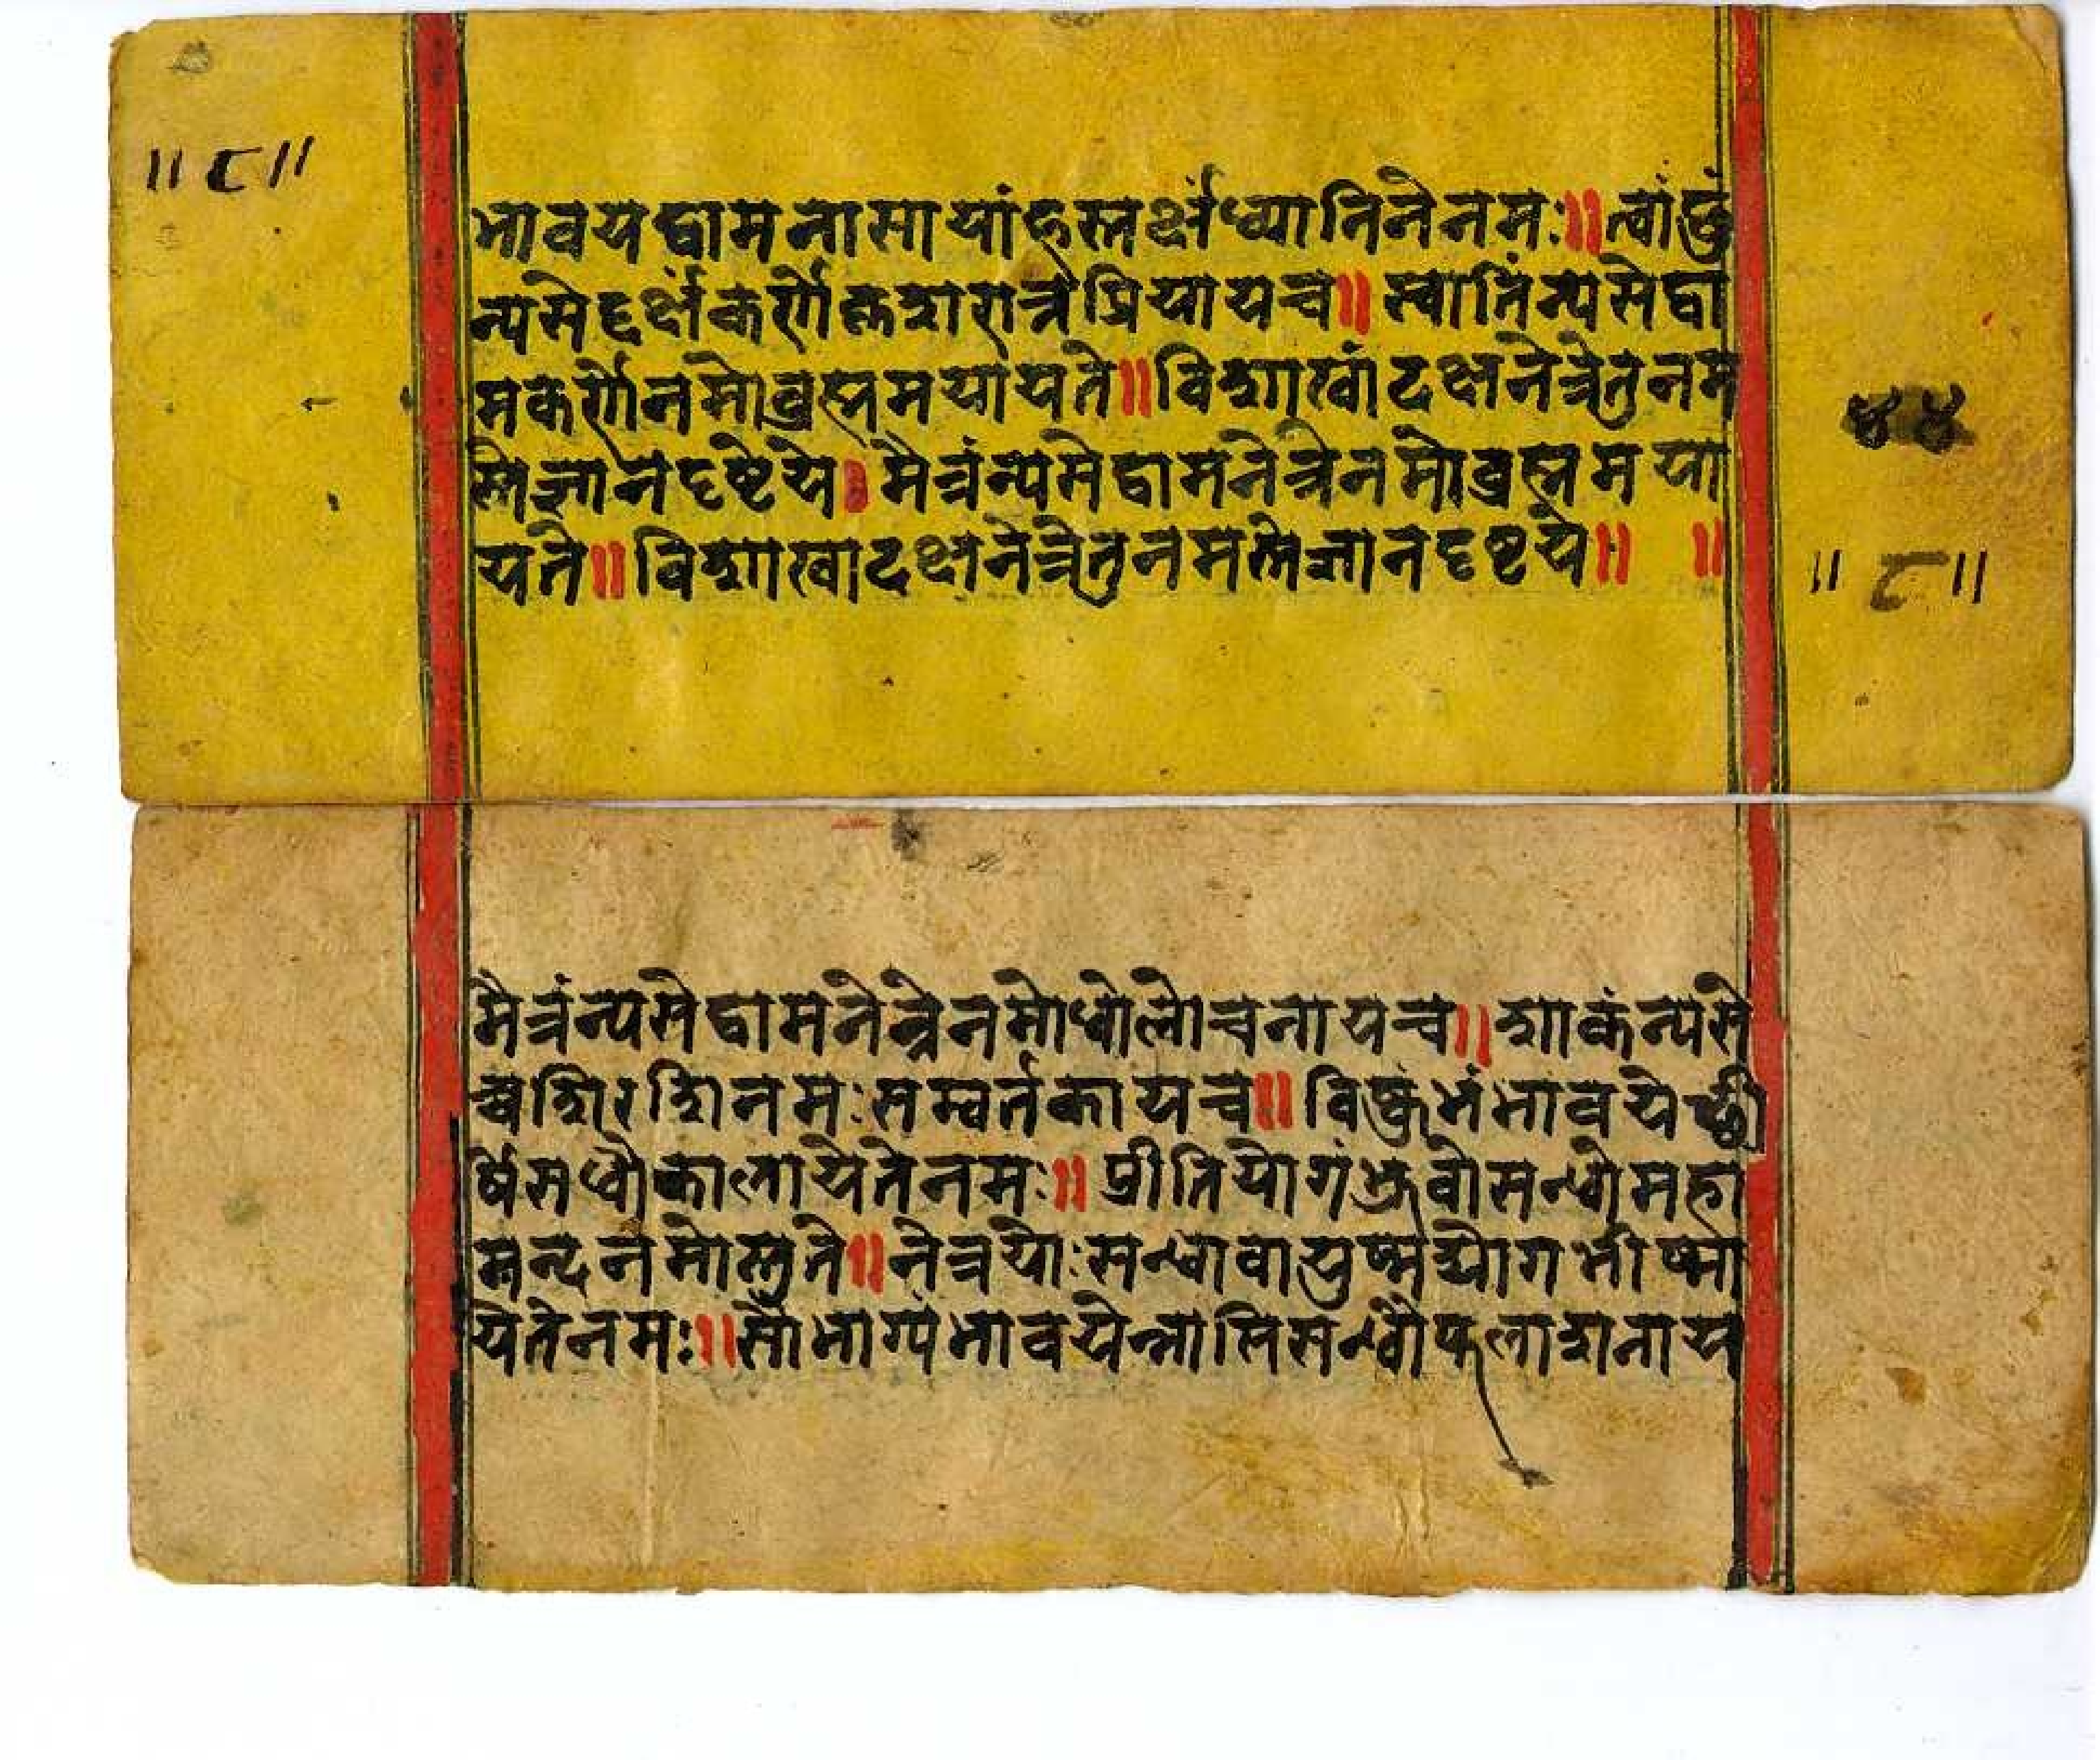 ॥ ८ ॥
भावयद्वामनासायांहस्तर्क्षंध्यानिनेनमः॥त्वाष्ट्रं
न्यसेद्दर्क्षकर्णेक्तशरात्रप्रियायच॥स्वातिंन्यसेद्वा
मकर्णेनमोव्रह्ममयायते॥विशाखांदक्षनेत्रेतुनम
स्तेज्ञानदृष्टेये॥मैत्रंन्यसेद्वामनेत्रेनमोव्रह्ममया
यते॥विशाखादक्षनेत्रेतुनमस्तेज्ञानदृष्टये॥ ॥
४४
॥ ८ ॥
मैत्रंन्यसेद्वामनेत्रेनमोधोलोचनायच॥शाकंन्यसे
च्चशिरशिनमःसम्वर्तकायच॥विष्कुभंभावयेच्छी
र्षेसधौकालायेतेनमः॥प्रीतियोगंभ्रुवोसन्धोमहा
मन्दनमोस्तुते॥नेत्रयोःसन्धावायुष्मद्योगभीष्मा
येतेनमः॥सौभाग्यंभावयेन्नासिसन्धौफलाशनाय